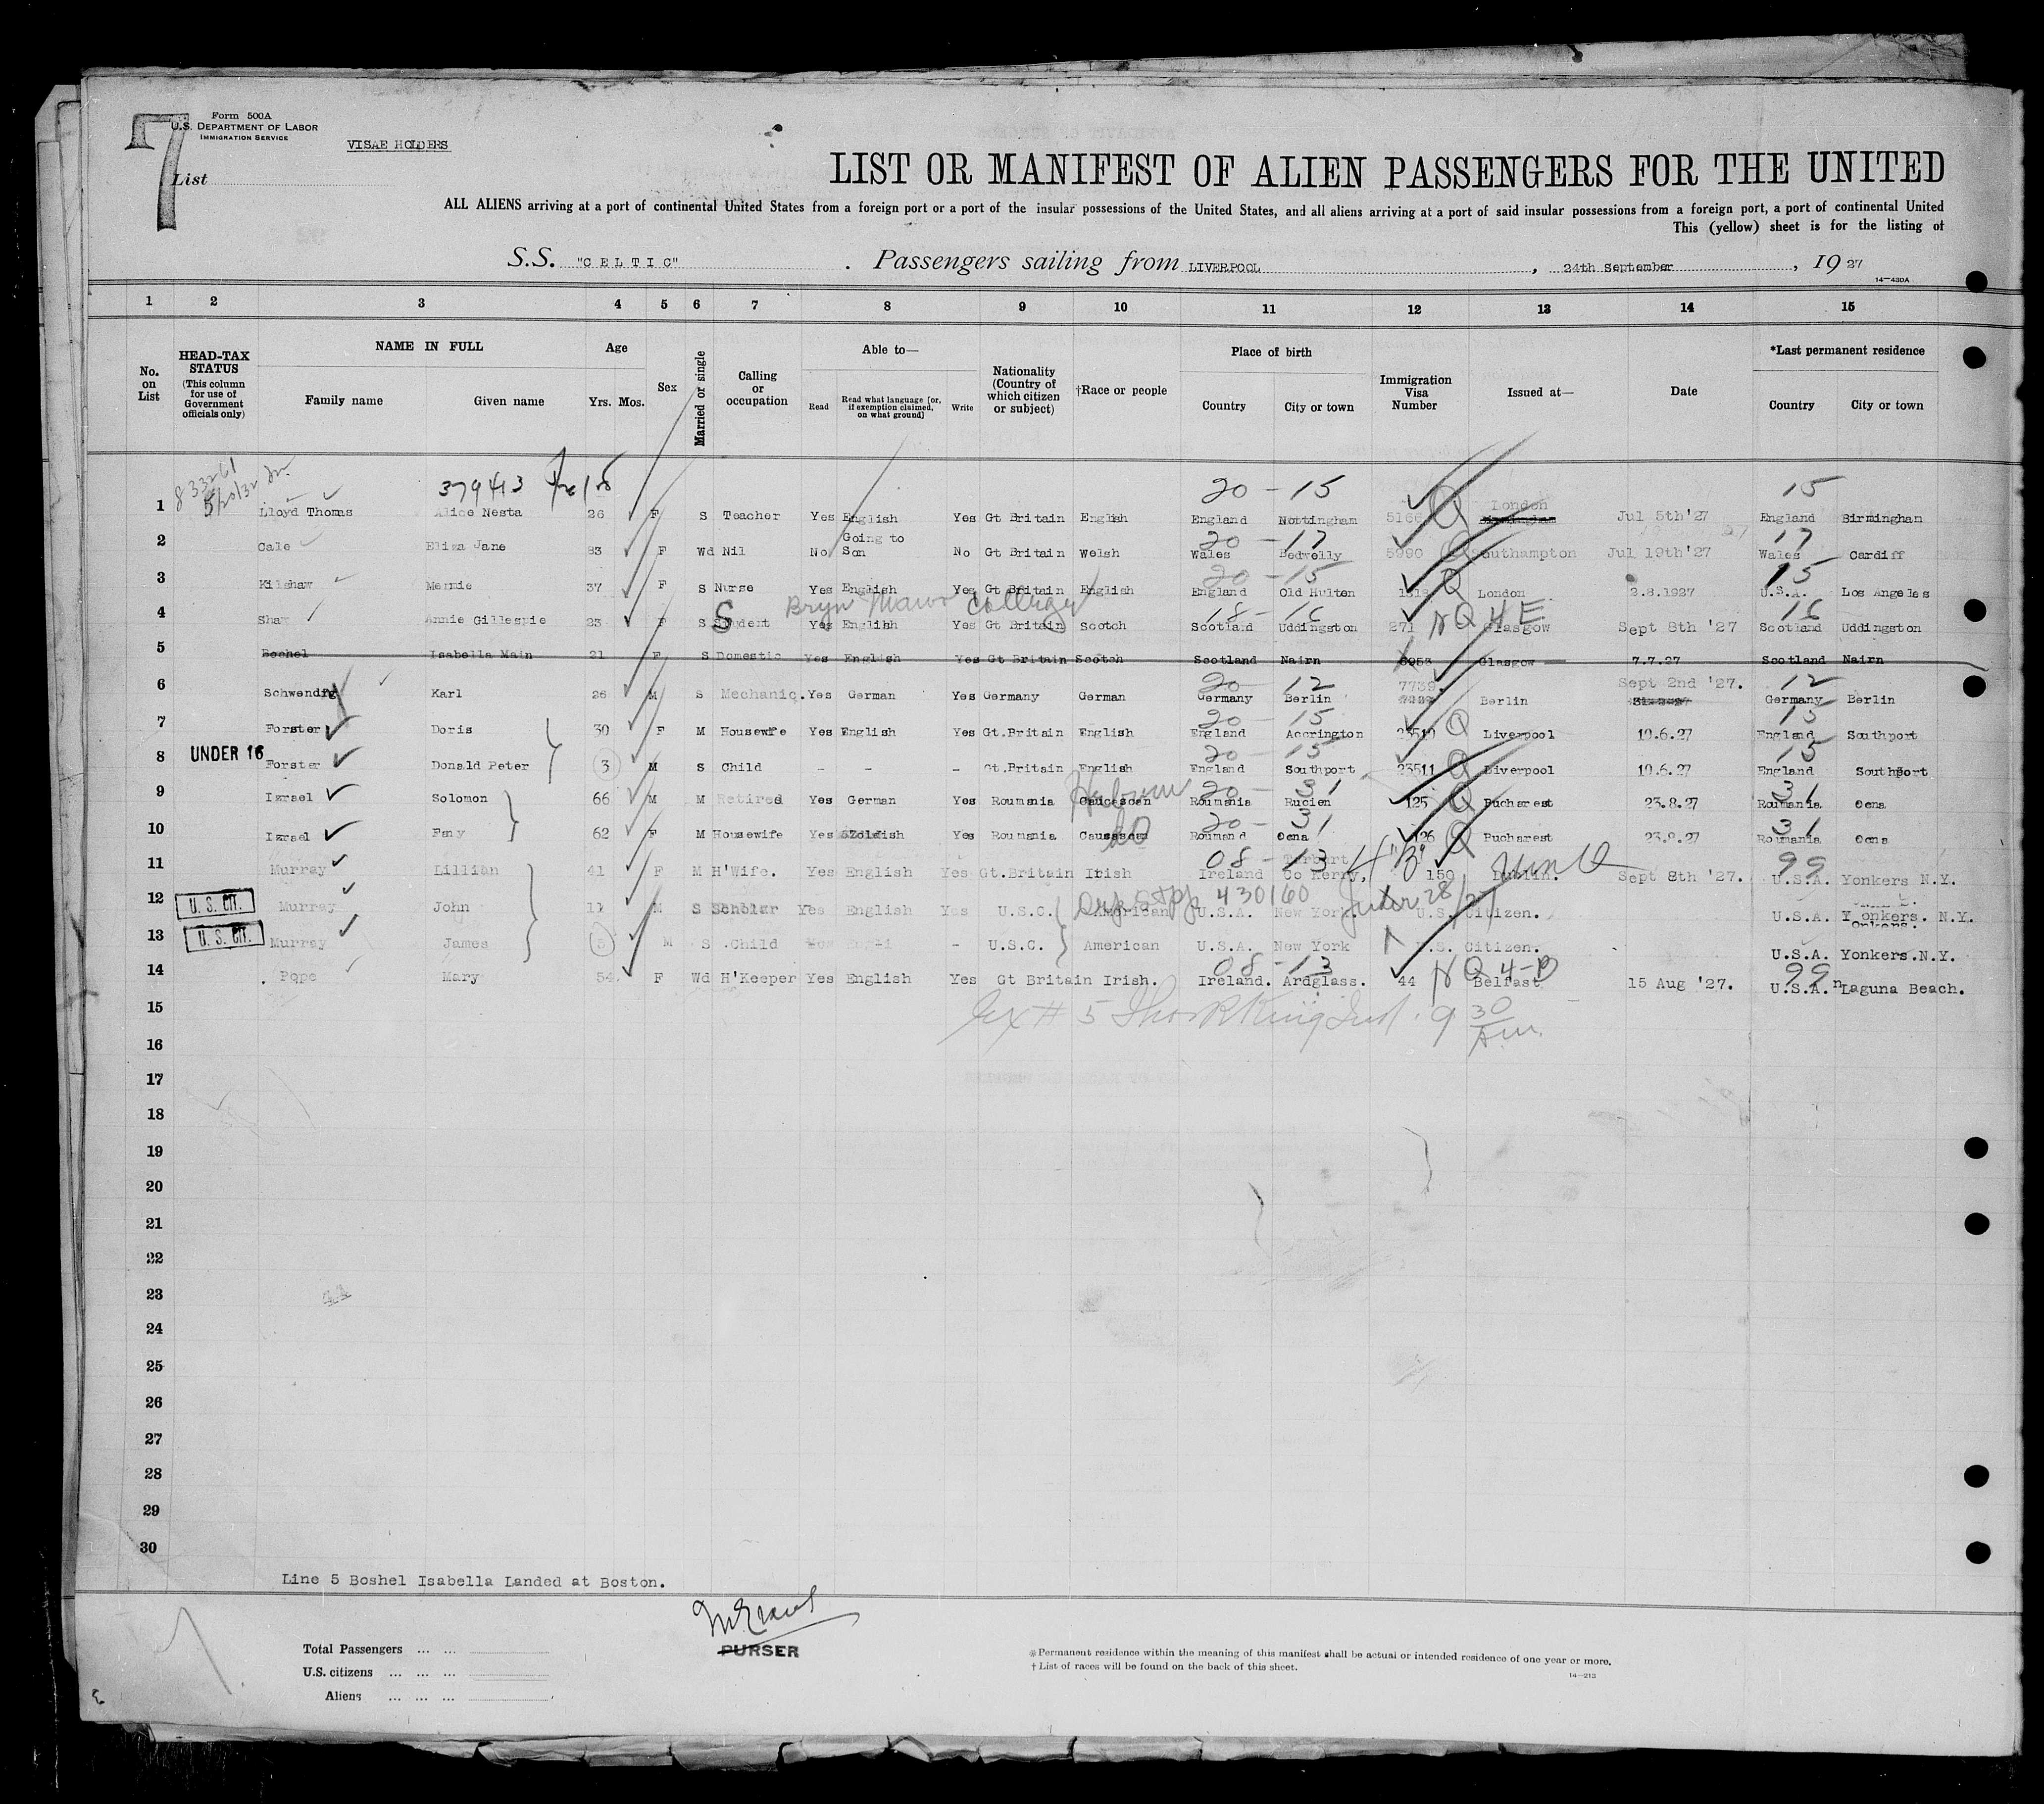 7
Form 500A
U.S. DEPARTMENT OF LABOR
IMMIGRATION SERVICE
VISAE HOLDERS
List
LIST OR MANIFEST OF ALIEN PASSENGERS FOR THE UNITED
ALL ALIENS arriving at a port of continental United States from a foreign port or a port of the insular possessions of the United States, and all aliens arriving at a port of said insular possessions from a foreign port, a port of continental United
This (yellow) sheet is for the listing of
S.S. "CELTIC" . Passengers sailing from LIVERPOOL , 24th September , 19 27
14—430A
1 2 3 4 5 6 7 8 9 10 11 12 13 14 15
No. on List
HEAD-TAX STATUS
(This column for use of Government officials only)
NAME IN FULL
Family name Given name
Age
Yrs. Mos.
Sex
Married or single
Calling or occupation
Able to—
Read
Read what language [or, if exemption claimed, on what ground]
Write
Nationality (Country of which citizen or subject)
†Race or people
Place of birth
Country City or town
Immigration Visa Number
Issued at—
Date
*Last permanent residence
Country City or town
833261 379413 20 - 15 London 15
1 Lloyd Thomas Alice Nesta 26 F S Teacher Yes English Yes Gt Britain English England Nottingham Q Birmingham Jul 5th '27 England Birmingham
Going to 20 - 17 17
2 Cale Eliza Jane 83 F Wd Nil No Son No Gt Britain Welsh Wales Bedwelly 5990 Q Southampton Jul 19th '27 Wales Cardiff
20 - 15 15
3 Kilshaw Mernie 37 F S Nurse Yes English Yes Gt Britain English England Old Hulton Q London 2.8.1927 U.S.A. Los Angeles
S Bryn Mawr College 18 - 16 NQ 4 E 16
4 Shaw Annie Gillespie 23 F S Student Yes English Yes Gt Britain Scotch Scotland Uddingston 271 Glasgow Sept 8th '27 Scotland Uddingston
5 Boshel Isabella Main 21 F S Domestic Yes English Yes Gt Britain Scotch Scotland Nairn Glasgow 7.7.27 Scotland Nairn
20 - 12 7739. Sept 2nd '27. 12
6 Schwendig Karl 26 M S Mechanic. Yes German Yes Germany German Germany Berlin Berlin Germany Berlin
20 - 15 15
7 Forster Doris 30 F M Housewife Yes English Yes Gt.Britain English England Accrington 23510 Q Liverpool 10.6.27 England Southport
20 - 15 15
8 UNDER 16 Forster Donald Peter 3 M S Child - - - Gt.Britain English England Southport 23511 Q Liverpool 10.6.27 England Southport
Hebrew 20 - 31 31
9 Izrael Solomon 66 M M Retired Yes German Yes Roumania Caucasean Roumania Rucien 125 Q Bucharest 23.8.27 Roumania Ocna
do 20 - 31 31
10 Izrael Fany 62 F M Housewife Yes Yes Roumania Caucasean Roumand Ocna 126 Q Bucharest 23.8.27 Roumania Ocna
08 - 13 4 "B" 99
11 Murray Lillian 41 F M H'Wife. Yes English Yes Gt.Britain Irish Ireland Co Kerry, 150 Dublin. Sept 8th '27. U.S.A. Yonkers N.Y.
430160
12 U. S. CIT. Murray John 11 M S Scholar Yes English Yes U.S.C. American U.S.A. New York. U.S. Citizen. U.S.A. Yonkers. N.Y.
13 U. S. CIT. Murray James 3 M S .Child - U.S.C. American U.S.A. New York U.S. Citizen. U.S.A. Yonkers.N.Y.
08 - 13 NQ 4-B 99
14 Pope Mary 54 F Wd H'Keeper Yes English Yes Gt Britain Irish. Ireland. Ardglass. 44 Belfast 15 Aug '27. U.S.A. Laguna Beach.
15 9 30 A.m.
16
17
18
19
20
21
22
23
24
25
26
27
28
29
30
Line 5 Boshel Isabella Landed at Boston.
PURSER
Total Passengers ... ...
U.S. citizens ... ... ...
Aliens ... ... ...
*Permanent residence within the meaning of this manifest shall be actual or intended residence of one year or more.
†List of races will be found on the back of this sheet.
14—213